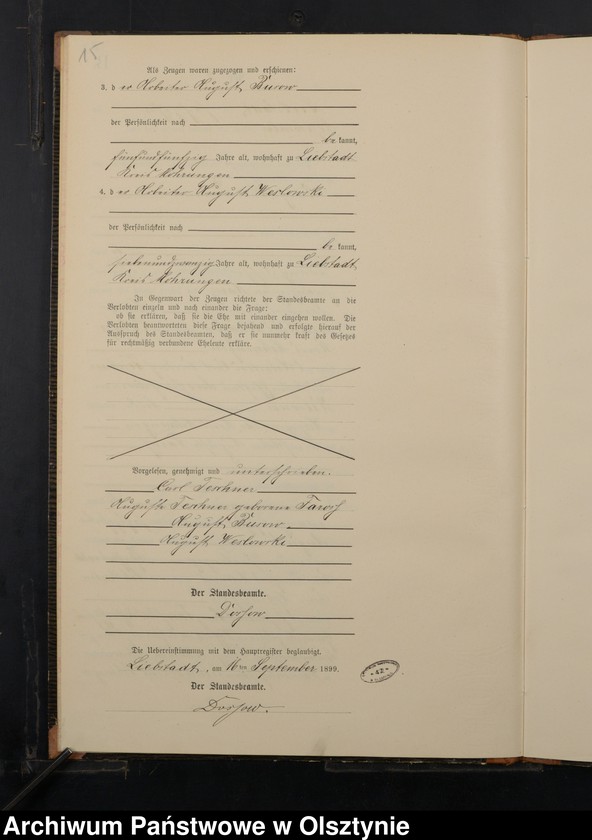 15
Als Zeugen waren zugezogen und erschienen:
3. der Arbeiter August Kurow
der Persönlichkeit nach
bekannt,
fünfundfünfzig Jahre alt, wohnhaft zu Liebstadt
Kreis Mohrungen
4. der Arbeiter August Weslowski
der Persönlichkeit nach
bekannt,
siebenundzwanzig Jahre alt, wohnhaft zu Liebstadt
Kreis Mohrungen
In Gegenwart der Zeugen richtete der Standesbeamte an die
Verlobten einzeln und nach einander die Frage:
ob sie erklären, daß sie die Ehe mit einander eingehen wollen. Die
Verlobten beantworteten diese Frage bejahend und erfolgte hierauf der
Ausspruch des Standesbeamten, daß er sie nunmehr kraft des Gesetzes
für rechtmäßig verbundene Eheleute erkläre.
Vorgelesen, genehmigt und unterschrieben.
Carl
Auguste geborene
August Kurow
August Weslowski
Der Standesbeamte.
Die Uebereinstimmung mit dem Hauptregister beglaubigt.
Liebstadt, am 16ten September 1899.
Der Standesbeamte.
42
Archiwum Państwowe w Olsztynie